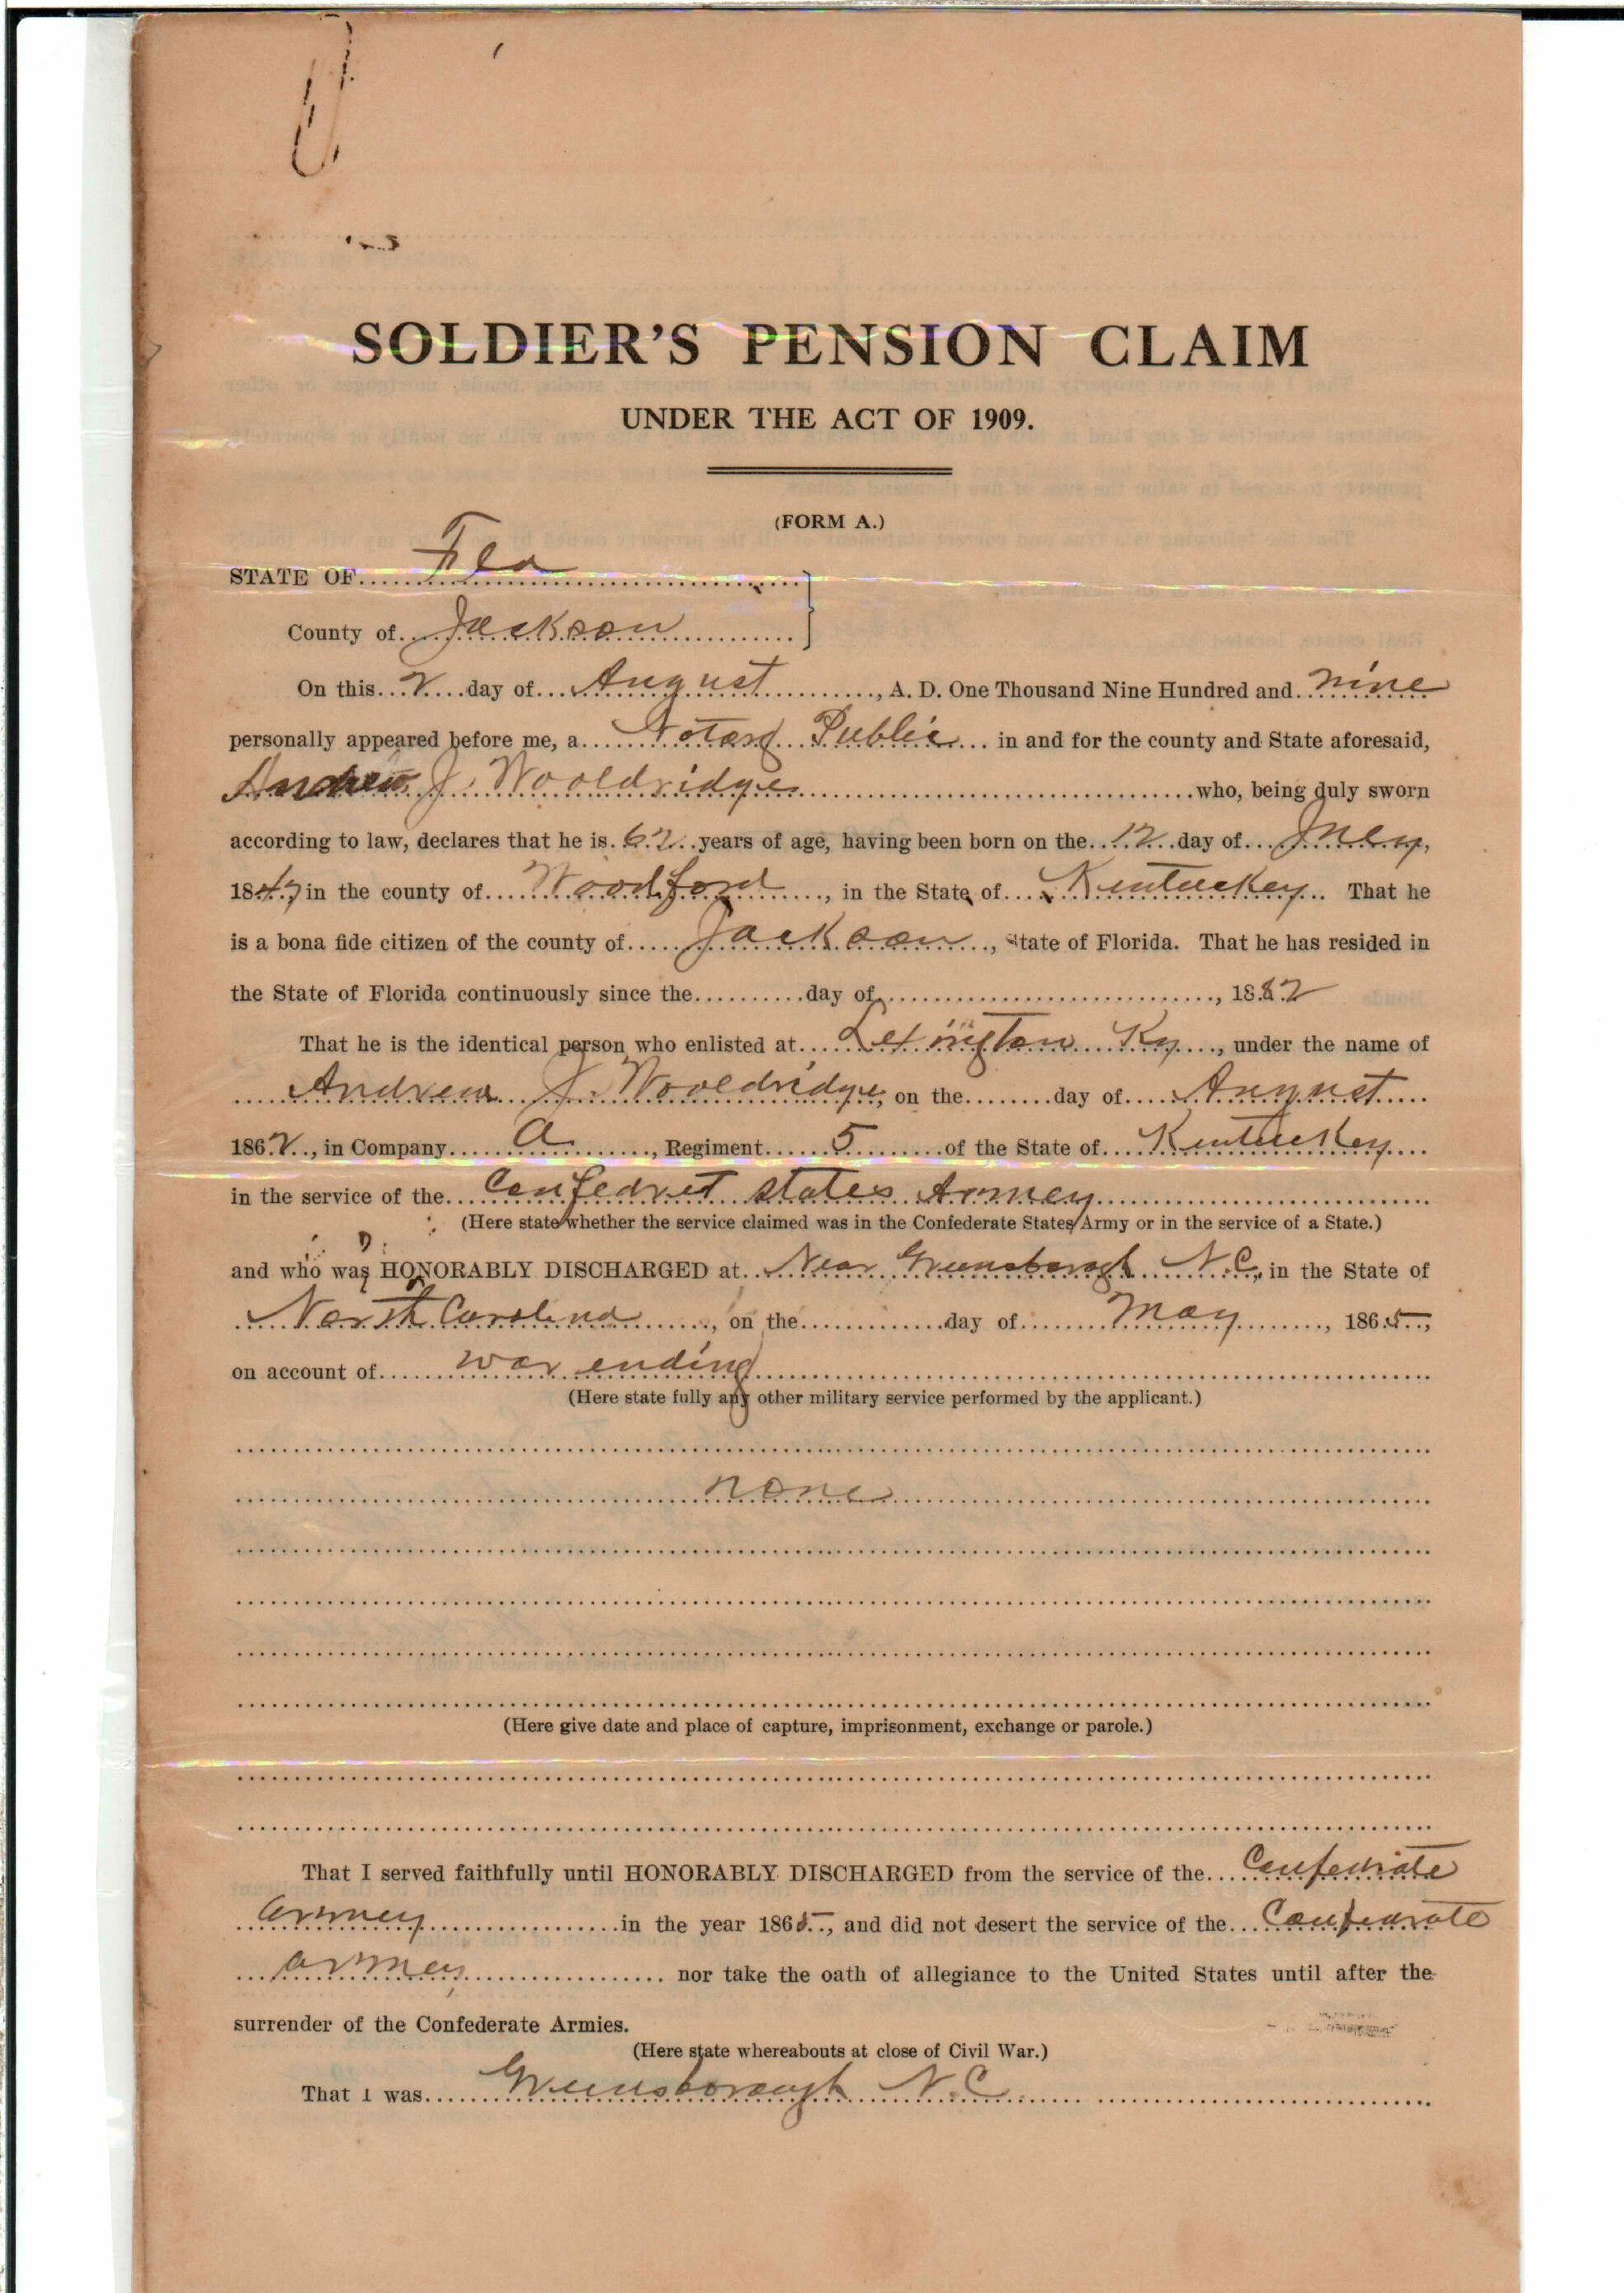 SOLDIER'S PENSION CLAIM
UNDER THE ACT OF 1909.
(FORM A.)
STATE OF Fla
County of Jackson
On this 2 day of August, A. D. One Thousand Nine Hundred and nine
personally appeared before me, a Notary Public in and for the county and State aforesaid,
Andrew J. Wooldridge who, being duly sworn
according to law, declares that he is 62 years of age, having been born on the 12 day of
1847 in the county of Woodford, in the State of Kentuckey. That he
is a bona fide citizen of the county of Jackson, State of Florida. That he has resided in
the State of Florida continuously since the day of, 1882
That he is the identical person who enlisted at Lexington Ky, under the name of
Andrew J. Wooldridge, on the day of August
1862, in Company A, Regiment 5 of the State of Kentuckey
in the service of the Confedret states Armey
(Here state whether the service claimed was in the Confederate States Army or in the service of a State.)
and who was HONORABLY DISCHARGED at Near Greensborough N.C., in the State of
North Carolina, on the day of May, 1865,
on account of war ending
(Here state fully any other military service performed by the applicant.)
none
(Here give date and place of capture, imprisonment, exchange or parole.)
That I served faithfully until HONORABLY DISCHARGED from the service of the Confedrate
armey in the year 1865, and did not desert the service of the Confedrate
armey nor take the oath of allegiance to the United States until after the
surrender of the Confederate Armies.
(Here state whereabouts at close of Civil War.)
That I was Greensborough N.C.